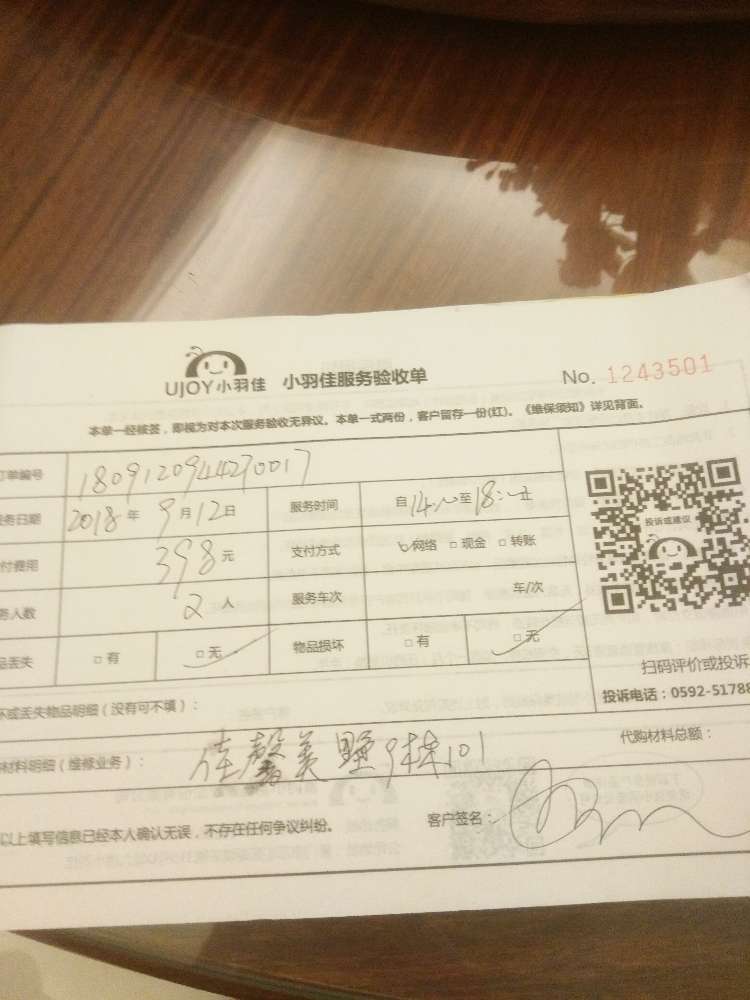 UJOY小羽佳 小羽佳服务验收单 No. 1243501
本单一经核签，即视为对本次服务验收无异议。本单一式两份，客户留存一份(红)。《维保须知》详见背面。
订单编号 1809120944270017
务日期 2018年9月12日 服务时间 自14:00至18:00止
付费用 398元 支付方式 网络 □现金 □转账
务人数 2人 服务车次 车/次
品丢失 □有 □无 物品损坏 □有 □无
投诉或建议
扫码评价或投诉
投诉电话：0592-51788
坏或丢失物品明细（没有可不填）：
材料明细（维修业务）： 佳馨美墅9栋101 代购材料总额：
以上填写信息已经本人确认无误，不存在任何争议纠纷。 客户签名：